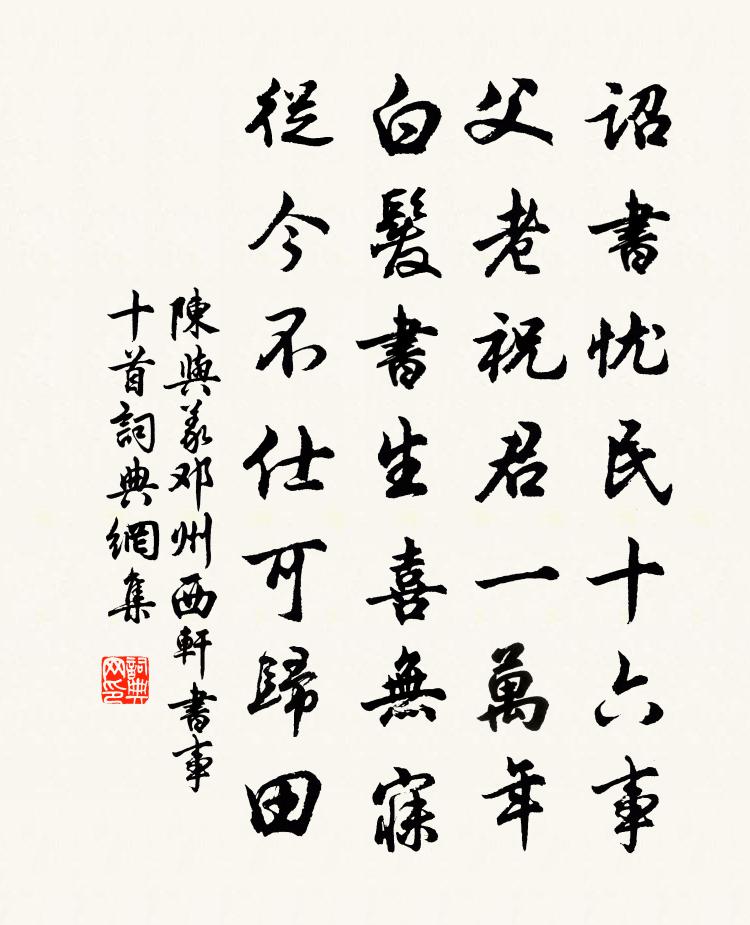 詔書忧民十六事
父老祝君一萬年
白髮書生喜無寐
從今不仕可歸田
陳與義邓州西軒書事
十首詞典網集
詞典網印